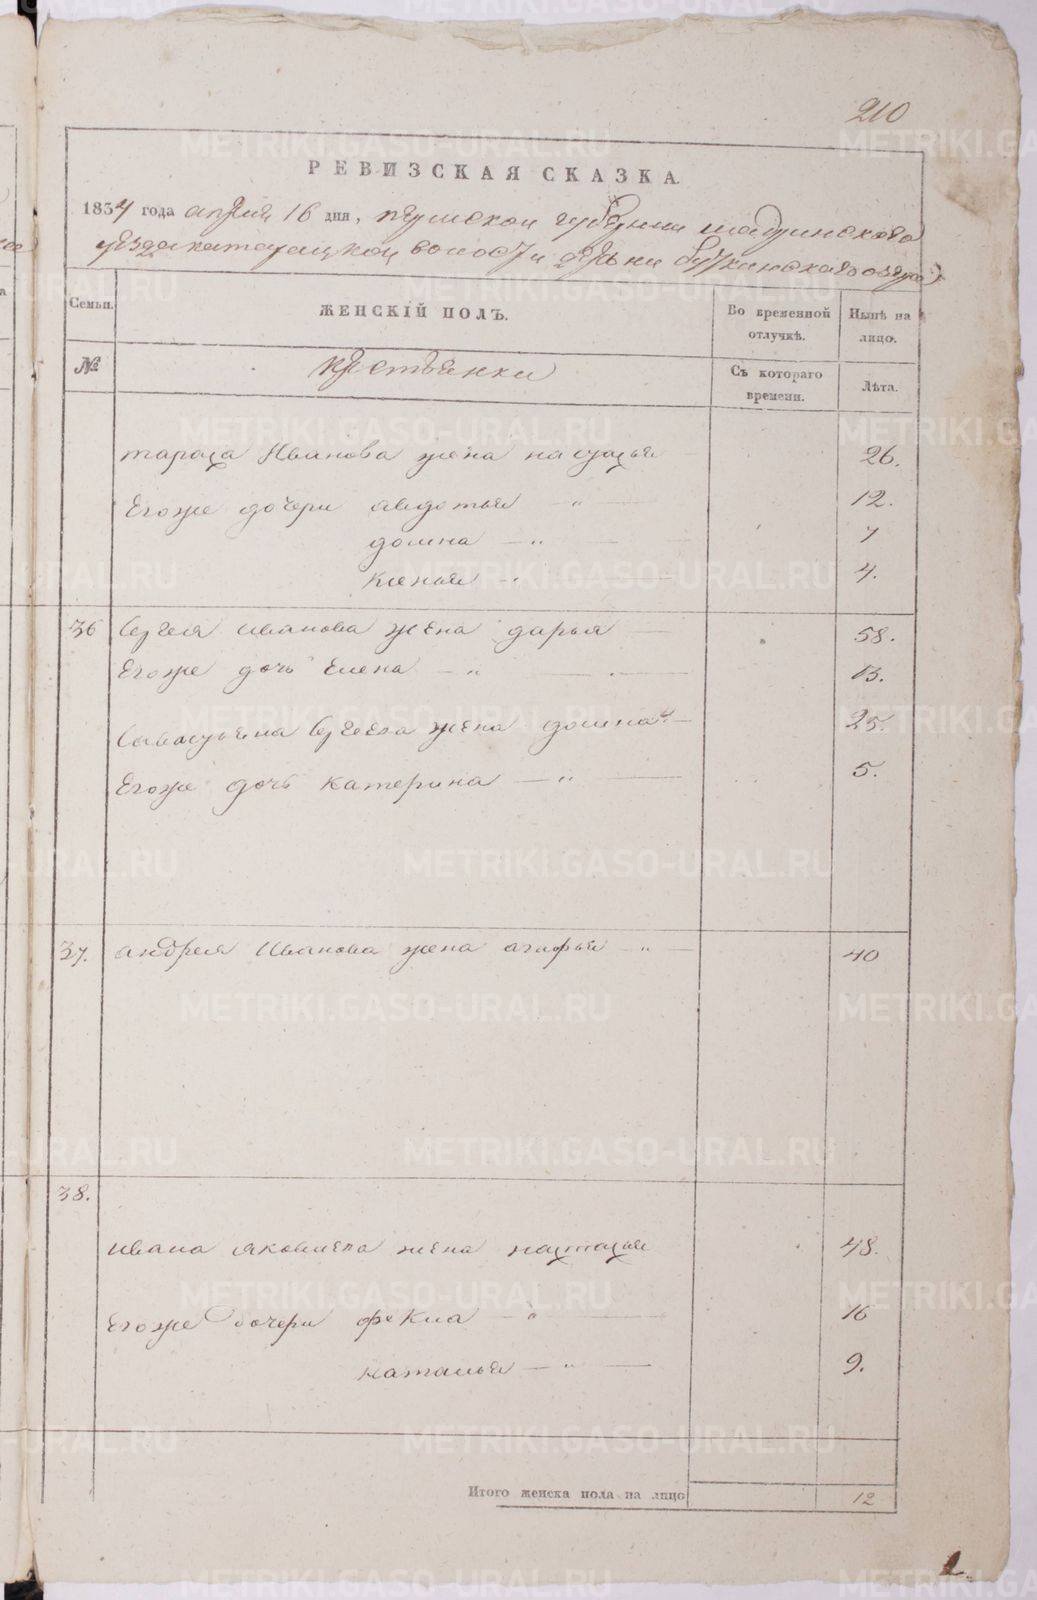 210
РЕВИЗСКАЯ СКАЗКА.
1834 года апреля 16 дня, пермской губернии шадринского
уезда катайской волости деревни буткинского озера
Семьи.
ЖЕНСКІЙ ПОЛЪ.
Во временной отлучкѣ.
Нынѣ на лицо.
№
крестьянки
Съ котораго времени.
Лѣта.
тараса Иванова жена настасья 26.
Егоже дочери авдотья — „ — 12.
домна — „ — 7
ксенья — „ — 4.
36 Сергея иванова жена дарья — 58.
Егоже дочь Елена — „ — 13.
Севастьяна Сергеева жена домна — 25.
Егоже дочь катерина — „ — 5.
37. андрея Иванова жена агафья „ — 40
38.
ивана яковлева жена настасья 48.
Егоже дочери фекла — „ — 16
наталья — „ — 9.
Итого женска пола на лицо 12
METRIKI.GASO-URAL.RU